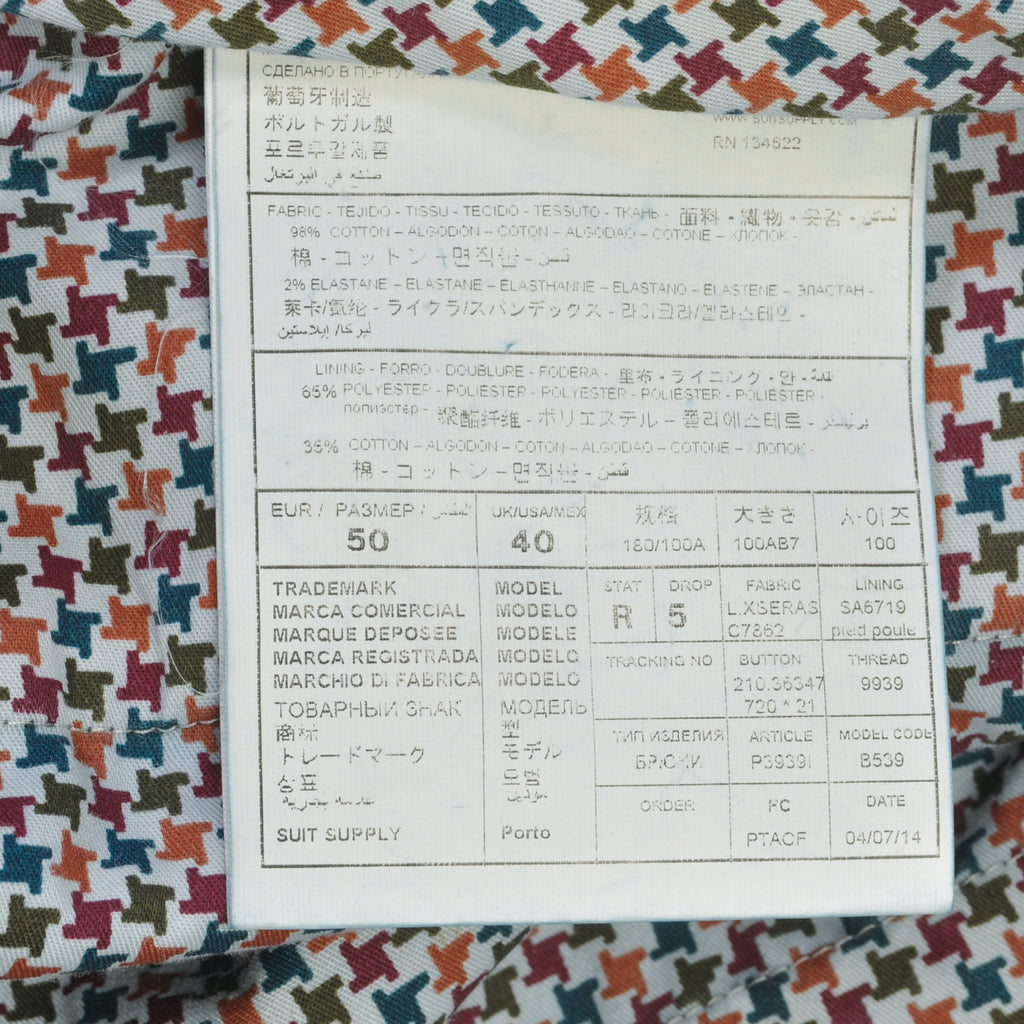 СДЕЛАНО В
葡萄牙制造
ポルトガル製
포르투갈제품
صنع في البرتغال
WWW.SUITSUPPLY.COM
RN 134622
FABRIC - TEJIDO - TISSU - TECIDO - TESSUTO - ТКАНЬ - 面料 - 織物 - 옷감 -
98% COTTON – ALGODON – COTON – ALGODAO – COTONE – ХЛОПОК -
棉 - コットン – 면직물 -
2% ELASTANE – ELASTANE – ELASTHANNE – ELASTANO – ELASTENE – ЭЛАСТАН -
莱卡/氨纶 - ライクラ/スパンデックス - 라이크라/엘라스테인 -
ليركا/ إيلاستين
LINING - FORRO - DOUBLURE - FODERA - 里布 - ライニング - 안 -
65% POLYESTER - POLIESTER - POLYESTER - POLIESTER - POLIESTER -
полиэстер - 聚酯纤维 - ポリエステル – 폴리에스테르 -
35% COTTON – ALGODON – COTON – ALGODAO – COTONE – ХЛОПОК -
棉 - コットン – 면직물 -
EUR / РАЗМЕР / المقاس
50
UK/USA/MEX
40
规格
180/100A
大きさ
100AB7
사이즈
100
TRADEMARK
MARCA COMERCIAL
MARQUE DEPOSEE
MARCA REGISTRADA
MARCHIO DI FABRICA
ТОВАРНЫЙ ЗНАК
商标
トレードマーク
상표
SUIT SUPPLY
MODEL
MODELO
MODELE
MODELO
MODELO
МОДЕЛЬ
型
モデル
모델
موديل
Porto
STAT
R
DROP
5
FABRIC
L.XSERAS
C7862
LINING
SA6719
pied poule
TRACKING NO
BUTTON
210.36347
720 * 21
THREAD
9939
ТИП ИЗДЕЛИЯ
БРЮКИ
ARTICLE
P3939I
MODEL CODE
B539
ORDER
FC
PTACF
DATE
04/07/14